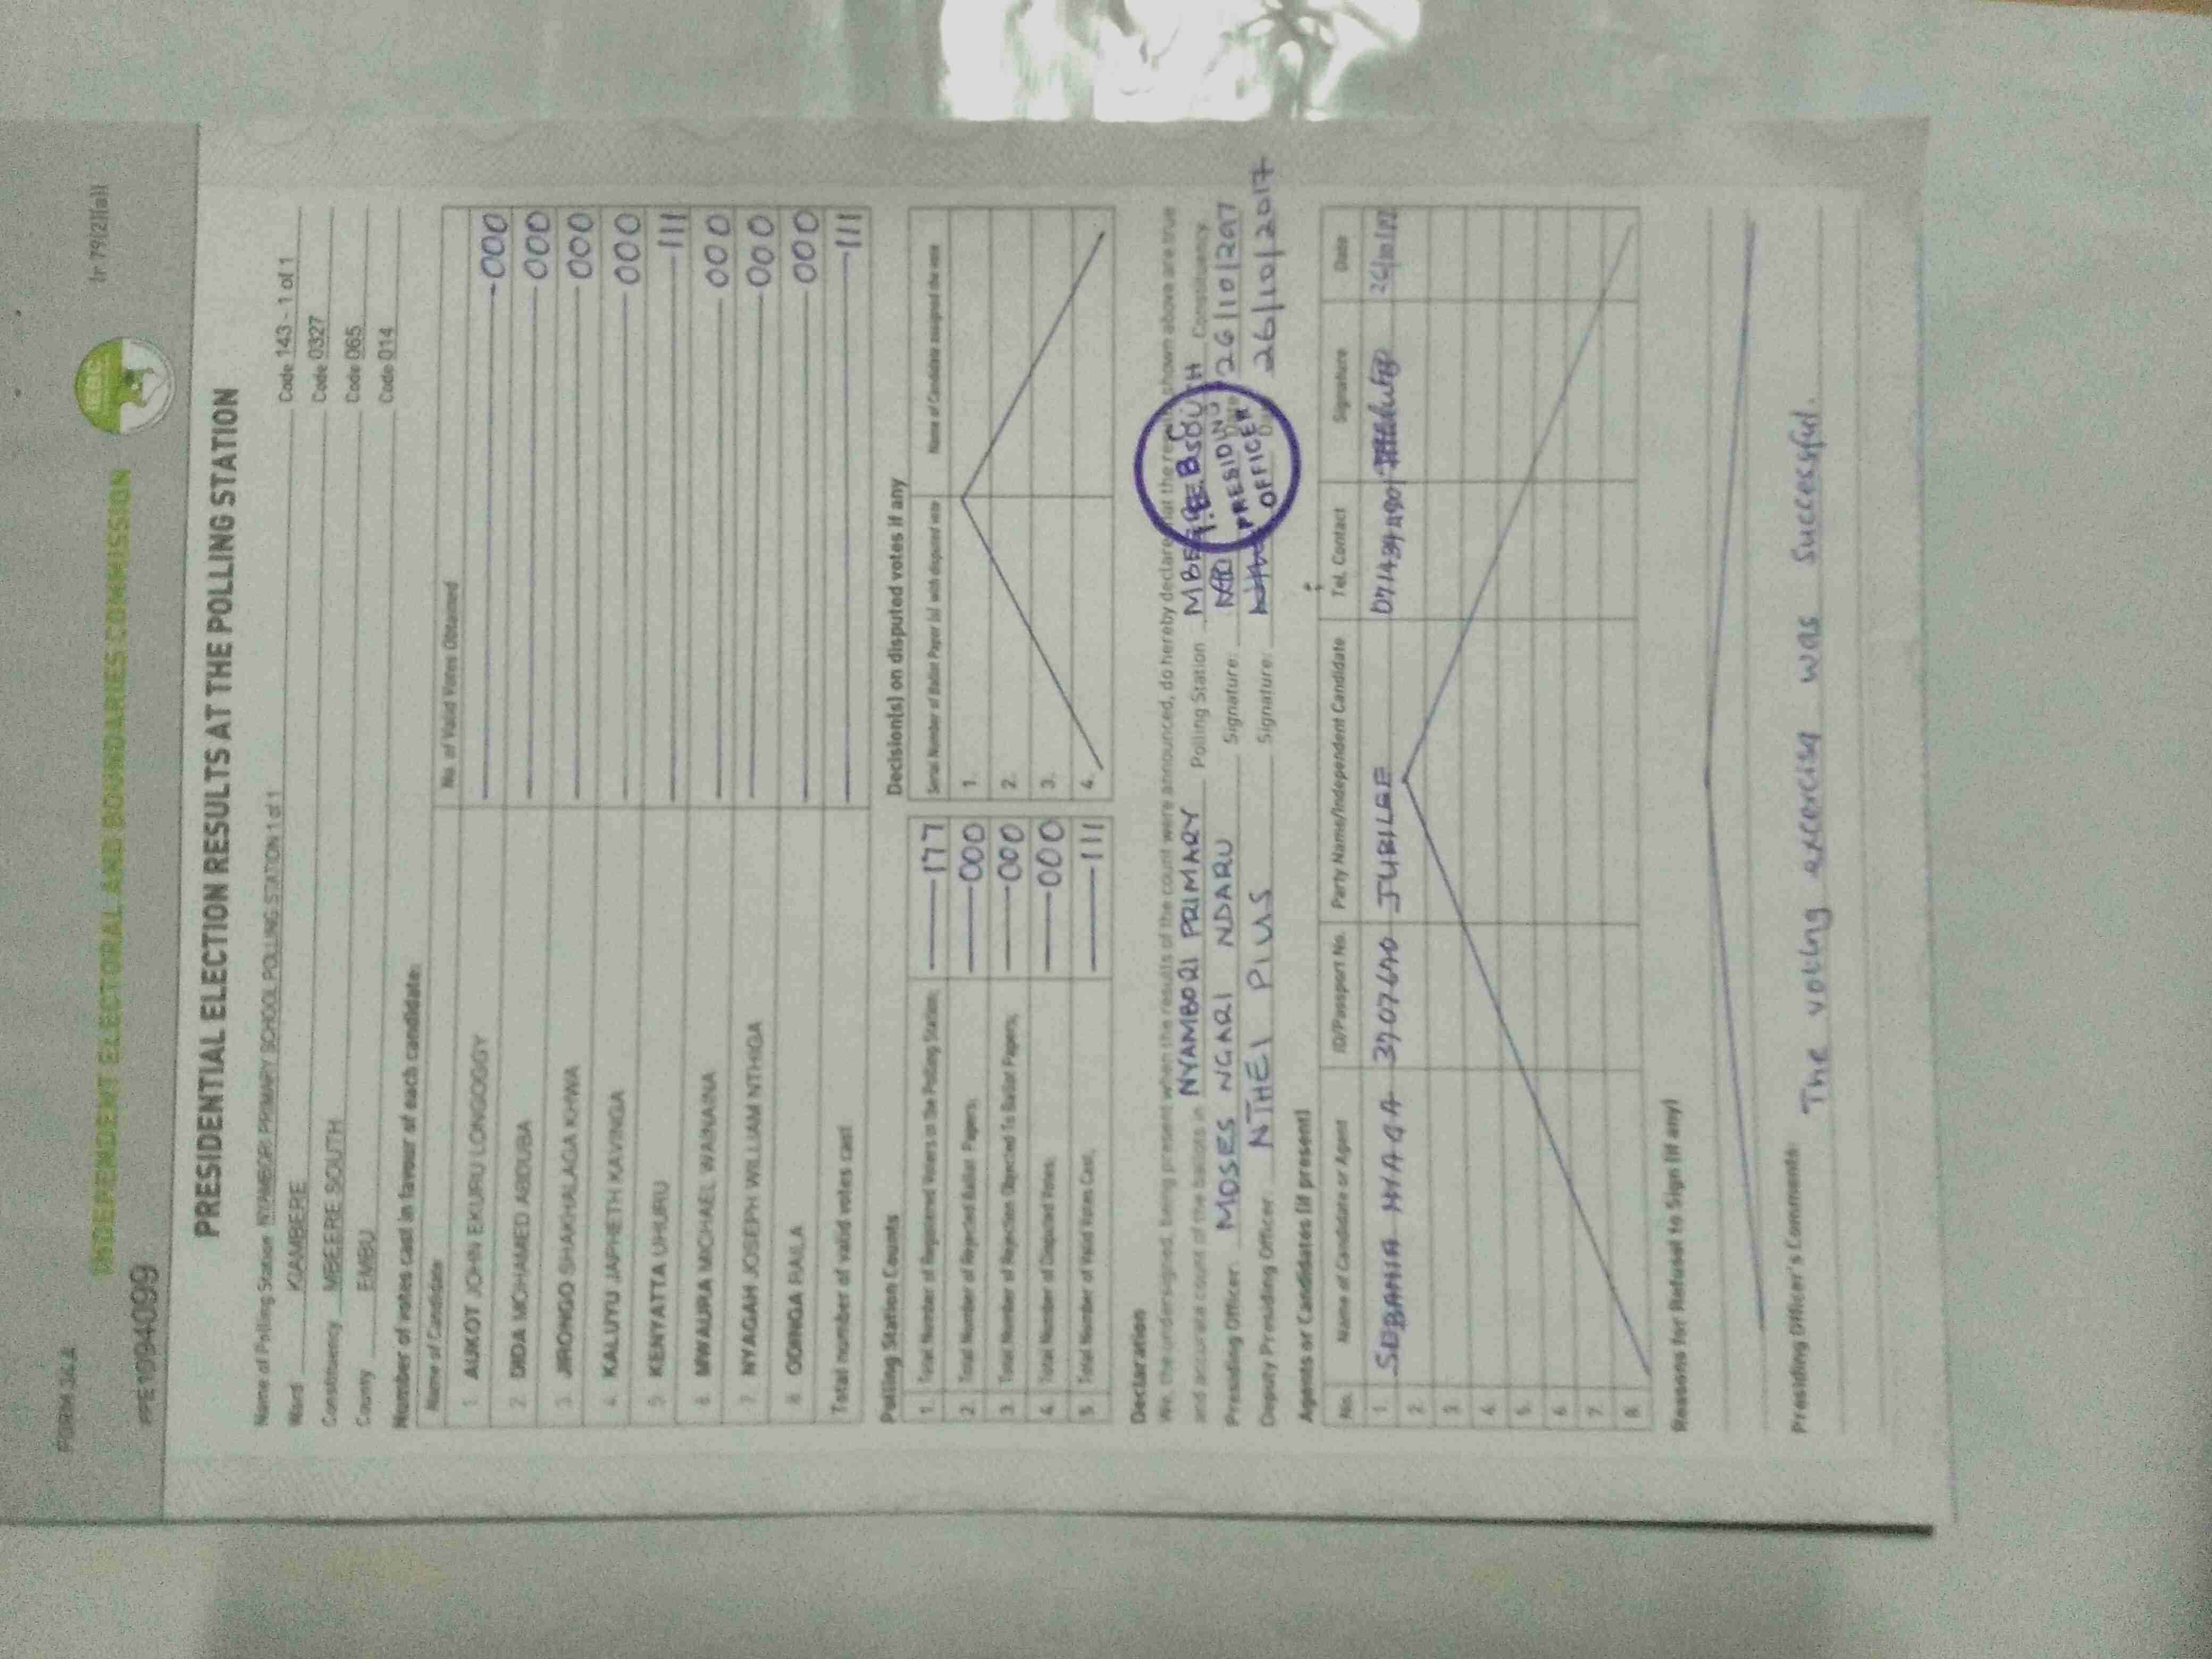 FORM 34A
(r 79(2)(a))
INDEPENDENT ELECTORAL AND BOUNDARIES COMMISSION
IEBC
PPE1094099
PRESIDENTIAL ELECTION RESULTS AT THE POLLING STATION
Name of Polling Station NYAMBORI PRIMARY SCHOOL POLLING STATION 1 of 1 Code 143 - 1 of 1
Ward KIAMBERE Code 0327
Constituency MBEERE SOUTH Code 065
County EMBU Code 014
Number of votes cast in favour of each candidate:
Name of Candidate No. of Valid Votes Obtained
1. AUKOT JOHN EKURU LONGOGGY 000
2. DIDA MOHAMED ABDUBA 000
3. JIRONGO SHAKHALAGA KHWA 000
4. KALUYU JAPHETH KAVINGA 000
5. KENYATTA UHURU 111
6. MWAURA MICHAEL WAINAINA 000
7. NYAGAH JOSEPH WILLIAM NTHIGA 000
8. ODINGA RAILA 000
Total number of valid votes cast 111
Polling Station Counts
1. Total Number of Registered Voters in the Polling Station; 177
2. Total Number of Rejected Ballot Papers; 000
3. Total Number of Rejection Objected To Ballot Papers; 000
4. Total Number of Disputed Votes; 000
5. Total Number of Valid Votes Cast; 111
Decision(s) on disputed votes if any
Serial Number of Ballot Paper (s) with disputed vote Name of Candidate assigned the vote
1.
2.
3.
4.
Declaration
We, the undersigned, being present when the results of the count were announced, do hereby declare that the results shown above are true
and accurate count of the ballots in NYAMBORI PRIMARY Polling Station MBEERE SOUTH Constituency.
Presiding Officer: MOSES NGARI NDARU Signature: Date 26/10/2017
Deputy Presiding Officer NTHEI PIUS Signature: 26/10/2017
I.E.B.C
PRESIDING
OFFICER
Agents or Candidates (if present)
No. Name of Candidate or Agent ID/Passport No. Party Name/Independent Candidate Tel. Contact Signature Date
1. JUBILEE
2.
3.
4.
5.
6.
7.
8.
Reasons for Refusal to Sign (if any)
Presiding Officer's Comments:
The voting excercise was Successful.